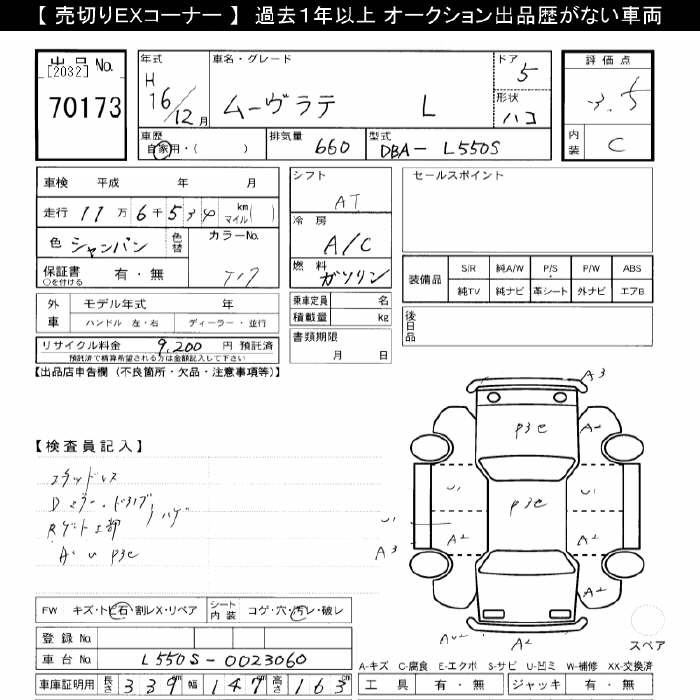 【 売切りEXコーナー 】 過去1年以上 オークション出品歴がない車両
出品 No.
[2032]
70173
年式 H 16/12月
車名・グレード ムーヴラテ L
ドア 5
形状 ハコ
評価点 3.5
内装 C
車歴 自家用・( )
排気量 660
型式 DBA- L550S
車検 平成 年 月
走行 11万 6千 5 km マイル( )
色 シャンパン 色替 カラーNo. T17
保証書 有・無
○を付ける
シフト AT
冷房 A/C
燃料 ガソリン
セールスポイント
装備品 S/R 純A/W P/S P/W ABS
純TV 純ナビ 革シート 外ナビ エアB
外車 モデル年式 年
ハンドル 左・右 ディーラー・並行
乗車定員 名
積載量 kg
後日品
リサイクル料金 9,200 円 預託済
預託済で精算希望される方は金額記入して下さい
書類期限 月 日
【出品店申告欄 (不良箇所・欠品・注意事項等)】
【検査員記入】
スタッドレス
Dミラー・ドアノブ ハゲ
Rゲート上部
A・U P3C
A3
A-
P3C
U1
P3C
U1
A2
A2
A3
A2
A2
FW キズ・トビ石・割レX・リペア
シート内装 コゲ・穴・汚レ・破レ
登録 No.
車台 No. L550S-0023060
車庫証明用 長さ 339cm 幅 147cm 高さ 163cm
スペア
A-キズ C-腐食 E-エクボ S-サビ U-凹ミ W-補修 XX-交換済
工具 有・無 ジャッキ 有・無